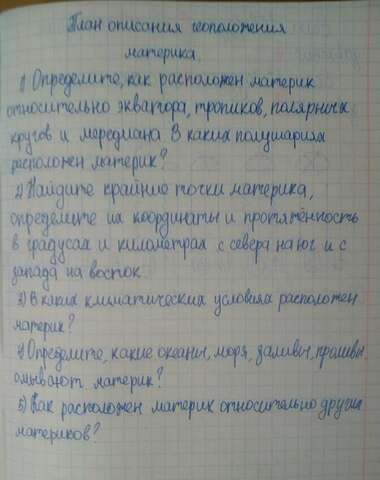 План описания геоположения
материка.
1) Определите, как расположен материк
относительно экватора, тропиков, полярных
кругов и мередиана. В каких полушариях
расположен материк?
2) Найдите крайние точки материка,
определите их координаты и протяжённость
в градусах и километрах с севера на юг и с
запада на восток.
3) В каких климатических условиях расположен
материк?
4) Определите, какие океаны, моря, заливы, проливы
омывают материк?
5) Как расположен материк относительно других
материков?